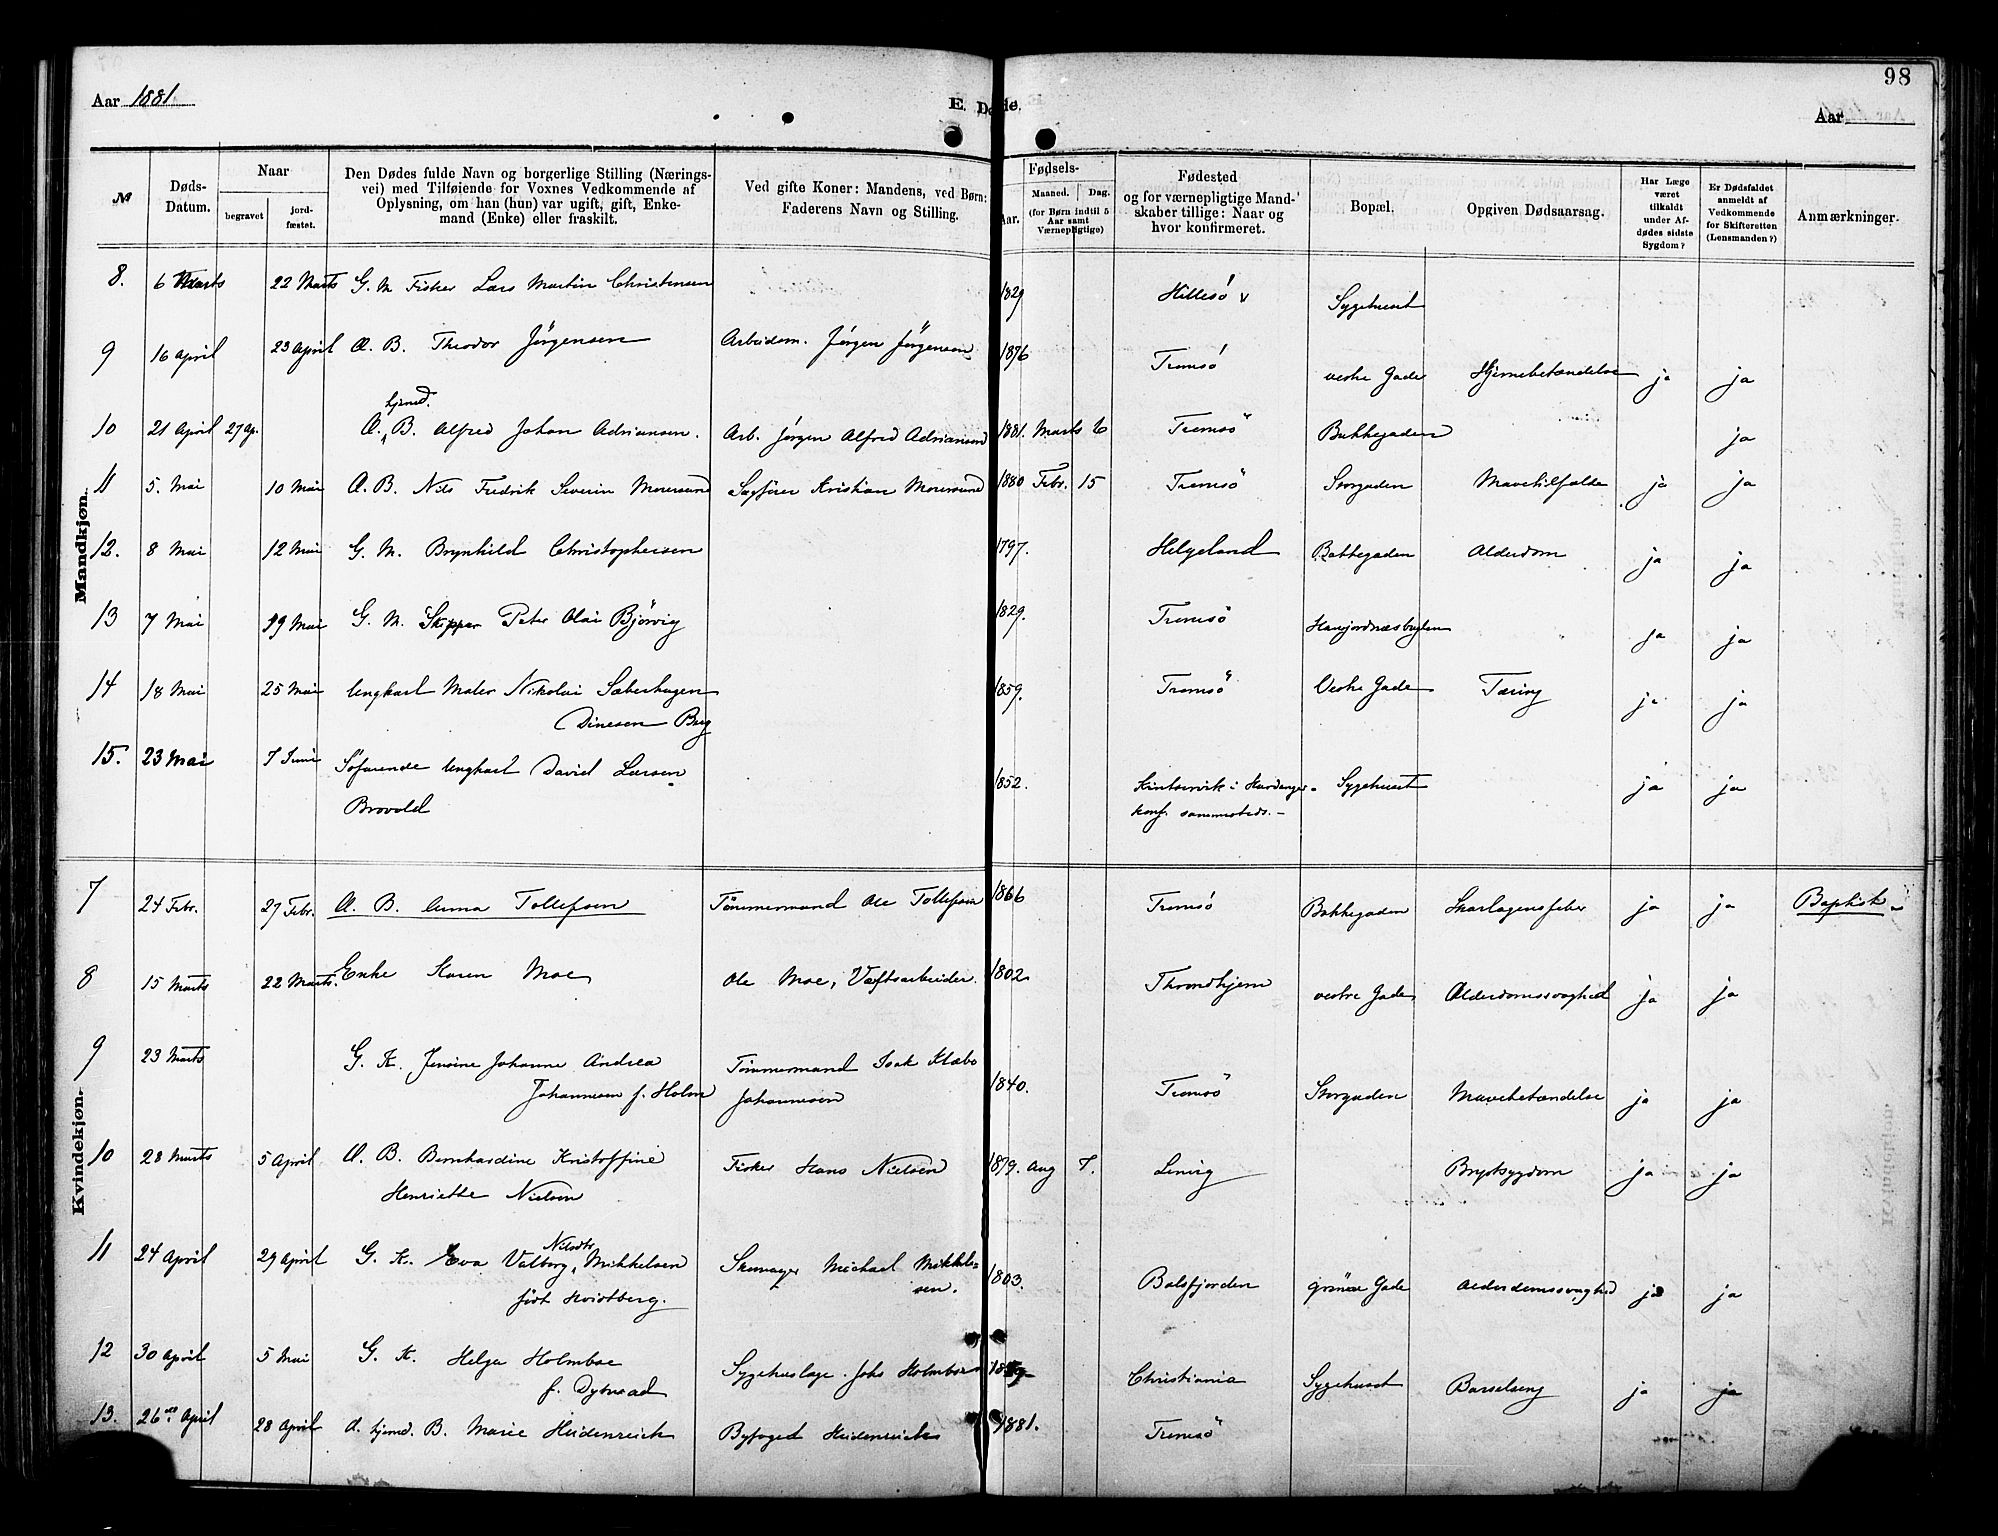 98
Aar 1881.
E. Døde.
Aar
№
Døds-Datum.
Naar
begravet
jord-fæstet.
Den Dødes fulde Navn og borgerlige Stilling (Nærings-
vei) med Tilføiende for Voxnes Vedkommende af
Oplysning, om han (hun) var ugift, gift, Enke-
mand (Enke) eller fraskilt.
Ved gifte Koner: Mandens, ved Børn:
Faderens Navn og Stilling.
Fødsels-
Aar.
Maaned.
Dag.
(for Børn indtil 5
Aar samt
Værnepligtige)
Fødested
og for værnepligtige Mand-
skaber tillige: Naar og
hvor konfirmeret.
Bopæl.
Opgiven Dødsaarsag.
Har Læge
været
tilkaldt
under Af-
dødes sidste
Sygdom?
Er Dødsfaldet
anmeldt af
Vedkommende
for Skifteretten
(Lensmanden?)
Anmærkninger.
Mandkjøn.
8. 6 Marts 22 Marts G. M. Fisker Lars Martin Christensen 1829 Hillesö Sygehuset
9 16 April 23 April Æ. B. Theodor Jörgensen Arbeidsm. Jörgen Jörgensen 1876 Tromsö vestre Gade Hjernebetændelse ja ja
10 21 April 27 Ap. Æ. hjemd. B. Alfred Johan Adriansen. Arb. Jörgen Alfred Adriansen 1881. Marts 6 Tromsö Bakkegaden ja
11 5. Mai 10 Mai Æ. B. Nils Fredrik Severin Sagförer Kristian 1880 Febr. 15 Tromsö Storgaden Mavetilfælde ja ja
12. 8 Mai 12 Mai G. M. Brynhild Christophersen 1797. Helgeland Bakkegaden Alderdom ja ja
13 7 Mai 19 Mai G. M. Skipper Peter Olai Björvig 1829. Tromsö ja ja
14 18 Mai 25 Mai Ungkarl Maler Nikolai Sæberhagen
Dinesen Berg 1859. Tromsö Vestre Gade Tæring ja ja
15. 23 Mai 7 Juni Söfarende Ungkarl David Larsen
Brovold 1852. Kintservik i Hardanger
konf. sammesteds.- Sygehuset ja ja
Kvindekjøn.
7 24 Febr. 27 Febr. Æ. B. Anna Tollefsen Tömmermand Ole Tollefsen 1866 Tromsö Bakkegaden Skarlagensfeber ja ja Baptist
8 15 Marts 22 Marts. Enke Karen Moe Ole Moe, Værftsarbeider. 1802 Throndhjem vestre Gade Alderdomssvaghed ja ja
9 23 Marts G. K. Jensine Johanne Andrea
Johannesen f. Holm Tömmermand Isak Klæbo
Johannesen 1840. Tromsö Storgaden Mavebetændelse ja ja
10 28 Marts 5 April Æ. B. Bernhardine Kristoffine
Henriette Nielsen Fisker Hans Nielsen 1879. Aug 7. Lenvig Brystsygdom ja ja
11 24 April 29 April G. K. Eva Valborg Nilsdtr Mikkelsen
född Kvistberg. Skomager Michael Mikkel-
sen. 1803. Balsfjorden grönne Gade Alderdomssvaghed ja ja
12 30 April 5 Mai G. K. Helga Holmboe
f. Dybwad Sygehuslæge Johs Holmboe Christiania Sygehuset Barselseng ja ja
13. 26 April 28 April Æ. hjemd. B. Marie Heidenreich Byfoged Heidenreich 1881. Tromsö